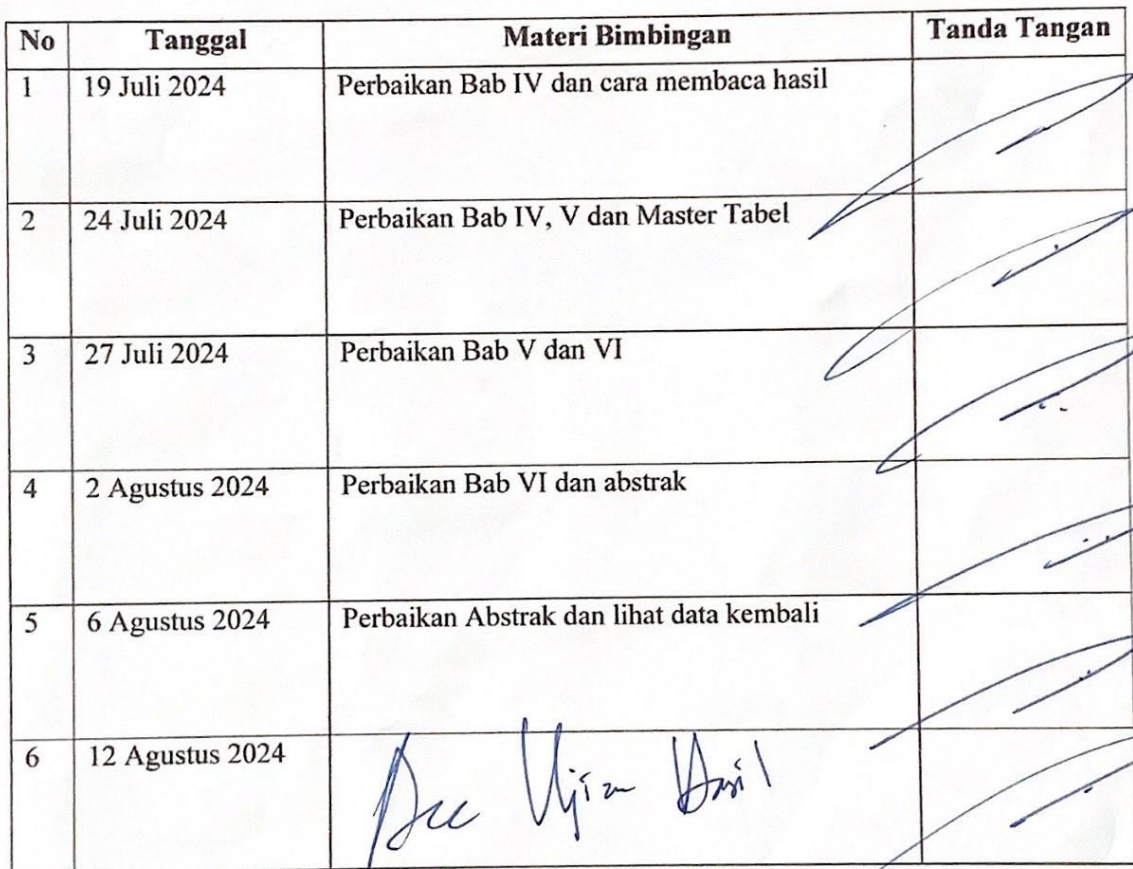 No Tanggal Materi Bimbingan Tanda Tangan
1 19 Juli 2024 Perbaikan Bab IV dan cara membaca hasil
2 24 Juli 2024 Perbaikan Bab IV, V dan Master Tabel
3 27 Juli 2024 Perbaikan Bab V dan VI
4 2 Agustus 2024 Perbaikan Bab VI dan abstrak
5 6 Agustus 2024 Perbaikan Abstrak dan lihat data kembali
6 12 Agustus 2024 Acc Ujian Hasil